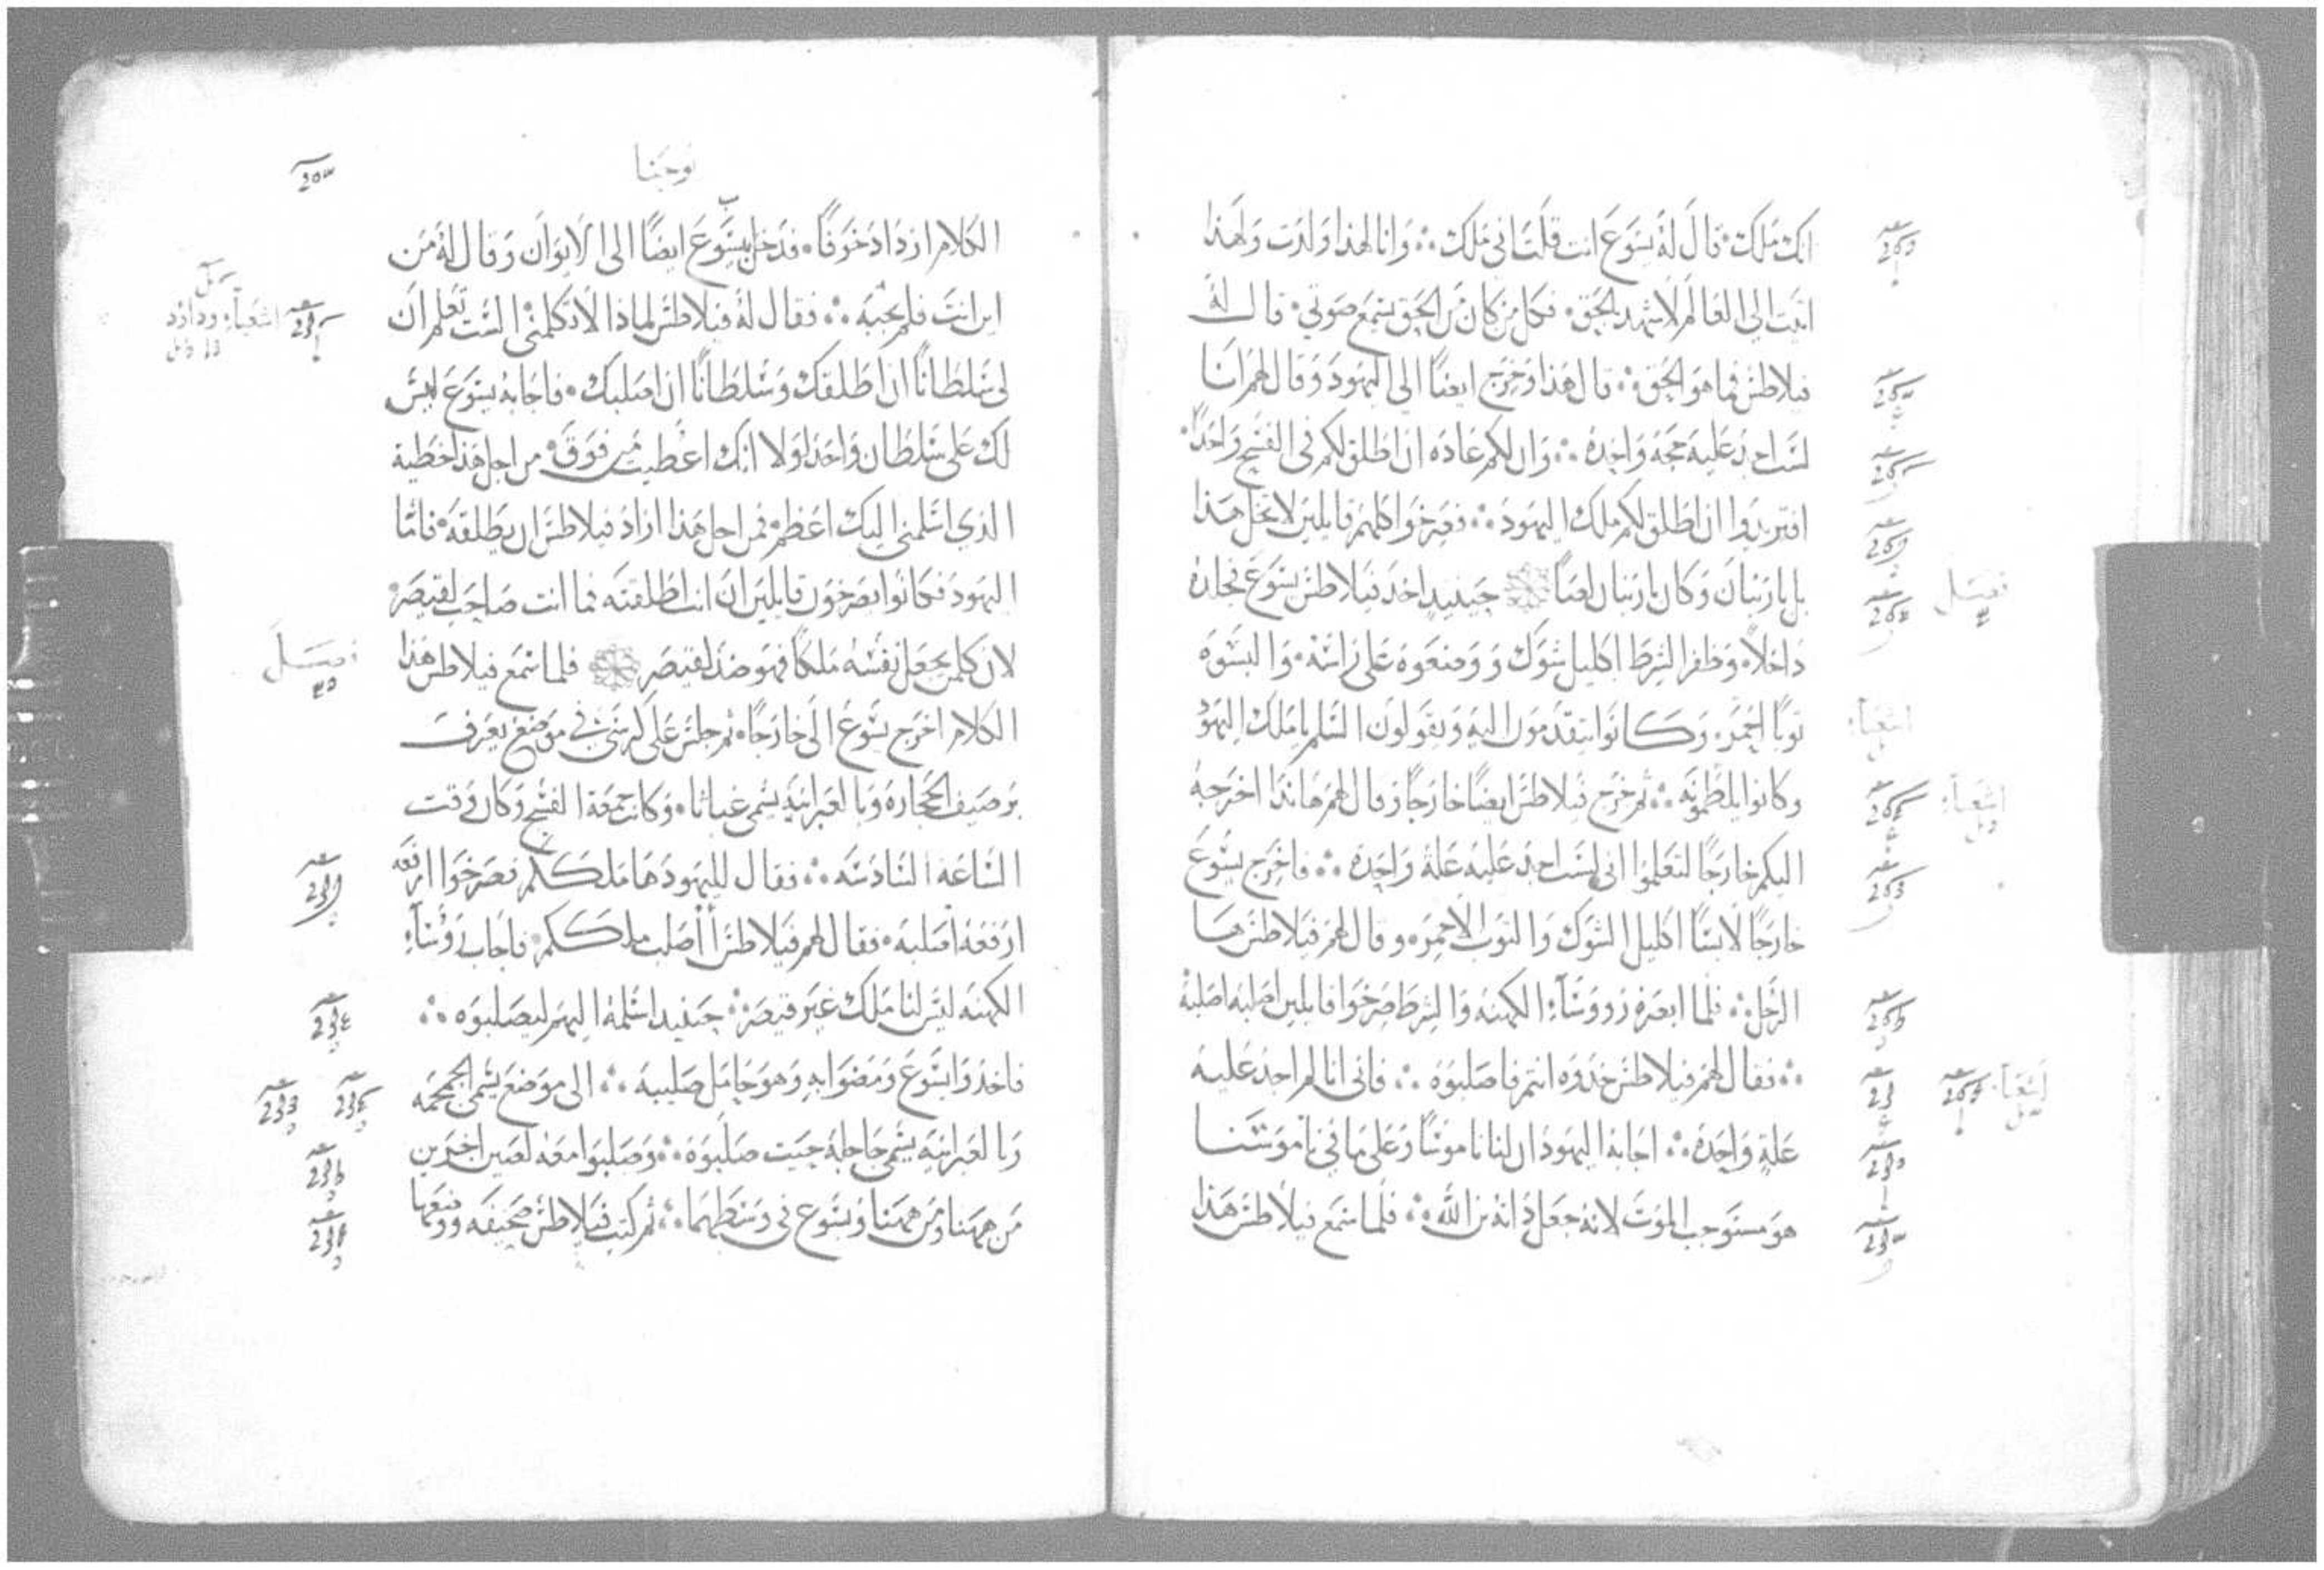 انك ملك. قال له يسوع انت قلت اني ملك. وانا لهذا ولدت ولهذا
اتيت الى العالم لاشهد بالحق. فكل من كان من الحق يسمع صوتي. قال له
فيلاطس فما هو الحق. قال هذا وخرج ايضًا الي اليهود وقال لهم انا
لست اجد عليه حجة واحدة. وان لكم عادة ان اطلق لكم في الفسح واحدًا.
افتريدوا ان اطلق لكم ملك اليهود. فصرخوا كلهم قايلين لا تخل هذا
بل بارنبان وكان بارنبان لصًا حينيدٍ اخذ فيلاطس يسوع فجلده
داخلاً. وظفر الشرط اكليل شوك ووضعوه على راسه. والبسوه
ثوبًا احمر. وكانوا يتقدمون اليه ويقولون السلم يا ملك اليهود
وكانوا يلطمونه. ثم خرج فيلاطس ايضًا خارجًا وقال لهم هانذا اخرجه
اليكم خارجًا لتعلموا اني لست اجد عليه علة واحدة. فاخرج يسوع
خارجًا لابسًا اكليل الشوك والثوب الاحمر. وقال لهم فيلاطس ها
الرجل. فلما ابصره رووسآء الكهنة والشرط صرخوا قايلين اصلبه اصلبه
فقال لهم فيلاطس خذوه انتم فاصلبوه. فاني انا لم اجد عليه
علةٍ واحدة. اجابه اليهود ان لنا ناموسًا وعلى ما في ناموسنا
هو مستوجب الموت لانه جعل ذاته بن الله. فلما سمع فيلاطس هذا
فصل
اشعيآ
اشعيآ
اشعيآ
يوحنا
الكلام ازداد خوفًا. فدخل بيسوع ايضًا الى الايوان وقال له من
اين انت فلم يجبه. فقال له فيلاطس لماذا لا تكلمني الست تعلم ان
لي سلطانًا ان اطلقك وسلطانًا ان اصلبك. فاجابه يسوع ليس
لك على سلطان واحد لولا انك اعطيت من فوق. من اجل هذا خطية
الذي اسلمني اليك اعظم. فمن اجل هذا اراد فيلاطس ان يطلقه. فاما
اليهود فكانوا يصرخون قايلين ان انت اطلقته فما انت صاحب لقيصر.
لان كلمن يجعل نفسه ملكًا فهو ضد لقيصر فلما سمع فيلاطس هذا
الكلام اخرج يسوع الى خارجًا. ثم جلس على كرسي في موضع يعرف
برصيف الحجارة وبالعبرانية يسمى غباثا. وكانت جمعة الفسح وكان وقت
الساعة السادسة. فقال لليهود ها ملككم فصرخوا ارفعه
ارفعه اصلبه. فقال لهم فيلاطس أأصلب ملككم. فاجاب رؤسآء
الكهنة ليس لنا ملك غير قيصر. حينيد اسلمه اليهم ليصلبوه.
فاخذوا يسوع ومضوا به وهو حامل صليبه. الى موضع يسمى الجمجمة
وبالعبرانية يسمى جاجلة حيت صلبوه. وصلبوا معه لصين اخرين
من ههنا ومن ههنا ويسوع في وسطهما. ثم كتب فيلاطس صحيفه ووضعها
اشعيآ وداود
فصل